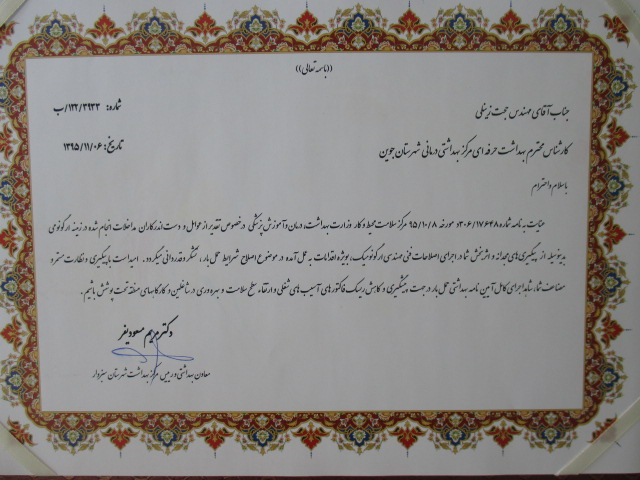 ((باسمه تعالی))
شماره: ۱۳۲/۳۹۳۳/ب
جناب آقای مهندس حجت زینلی
تاریخ: ۱۳۹۵/۱۱/۰۶
کارشناس محترم بهداشت حرفه ای مرکز بهداشتی درمانی شهرستان جوین
باسلام و احترام
عنایت به نامه شماره ۳۰۶/۱۷۶۴۸د مورخه ۹۵/۱۰/۸ مرکز سلامت محیط و کار وزارت بهداشت، درمان و آموزش پزشکی در خصوص تقدیر از عوامل و دست اندرکاران مداخلات انجام شده در زمینه ارگونومی
بدینوسیله از پیگیری های مجدانه و اثربخش شما در اجرای اصلاحات فنی مهندسی ارگونومیک، بویژه اقدامات به عمل آمده در موضوع اصلاح شرایط حمل بار، تشکر و قدردانی میگردد. امید است با پیگیری و نظارت مستمر و
مضاعف شما، شاهد اجرای کامل آیین نامه بهداشتی حمل بار در جهت پیشگیری و کاهش ریسک فاکتورهای آسیب های شغلی و ارتقاء سطح سلامت و بهره وری در شاغلین و کارگاههای منطقه تحت پوشش باشیم.
دکتر مریم مسعودیفر
معاون بهداشتی و رییس مرکز بهداشت شهرستان سبزوار